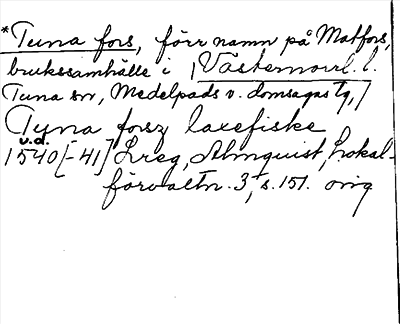 *Tuna fors, förr namn på Matfors,
brukssamhälle i Västernorrl. l.
Tuna sn, Medelpads v. domsagas tg,
Tyna forsz laxefiske
v.d.
1540[-41] Lreg, Almquist, Lokal-
förvaltn. 3, s. 151. orig